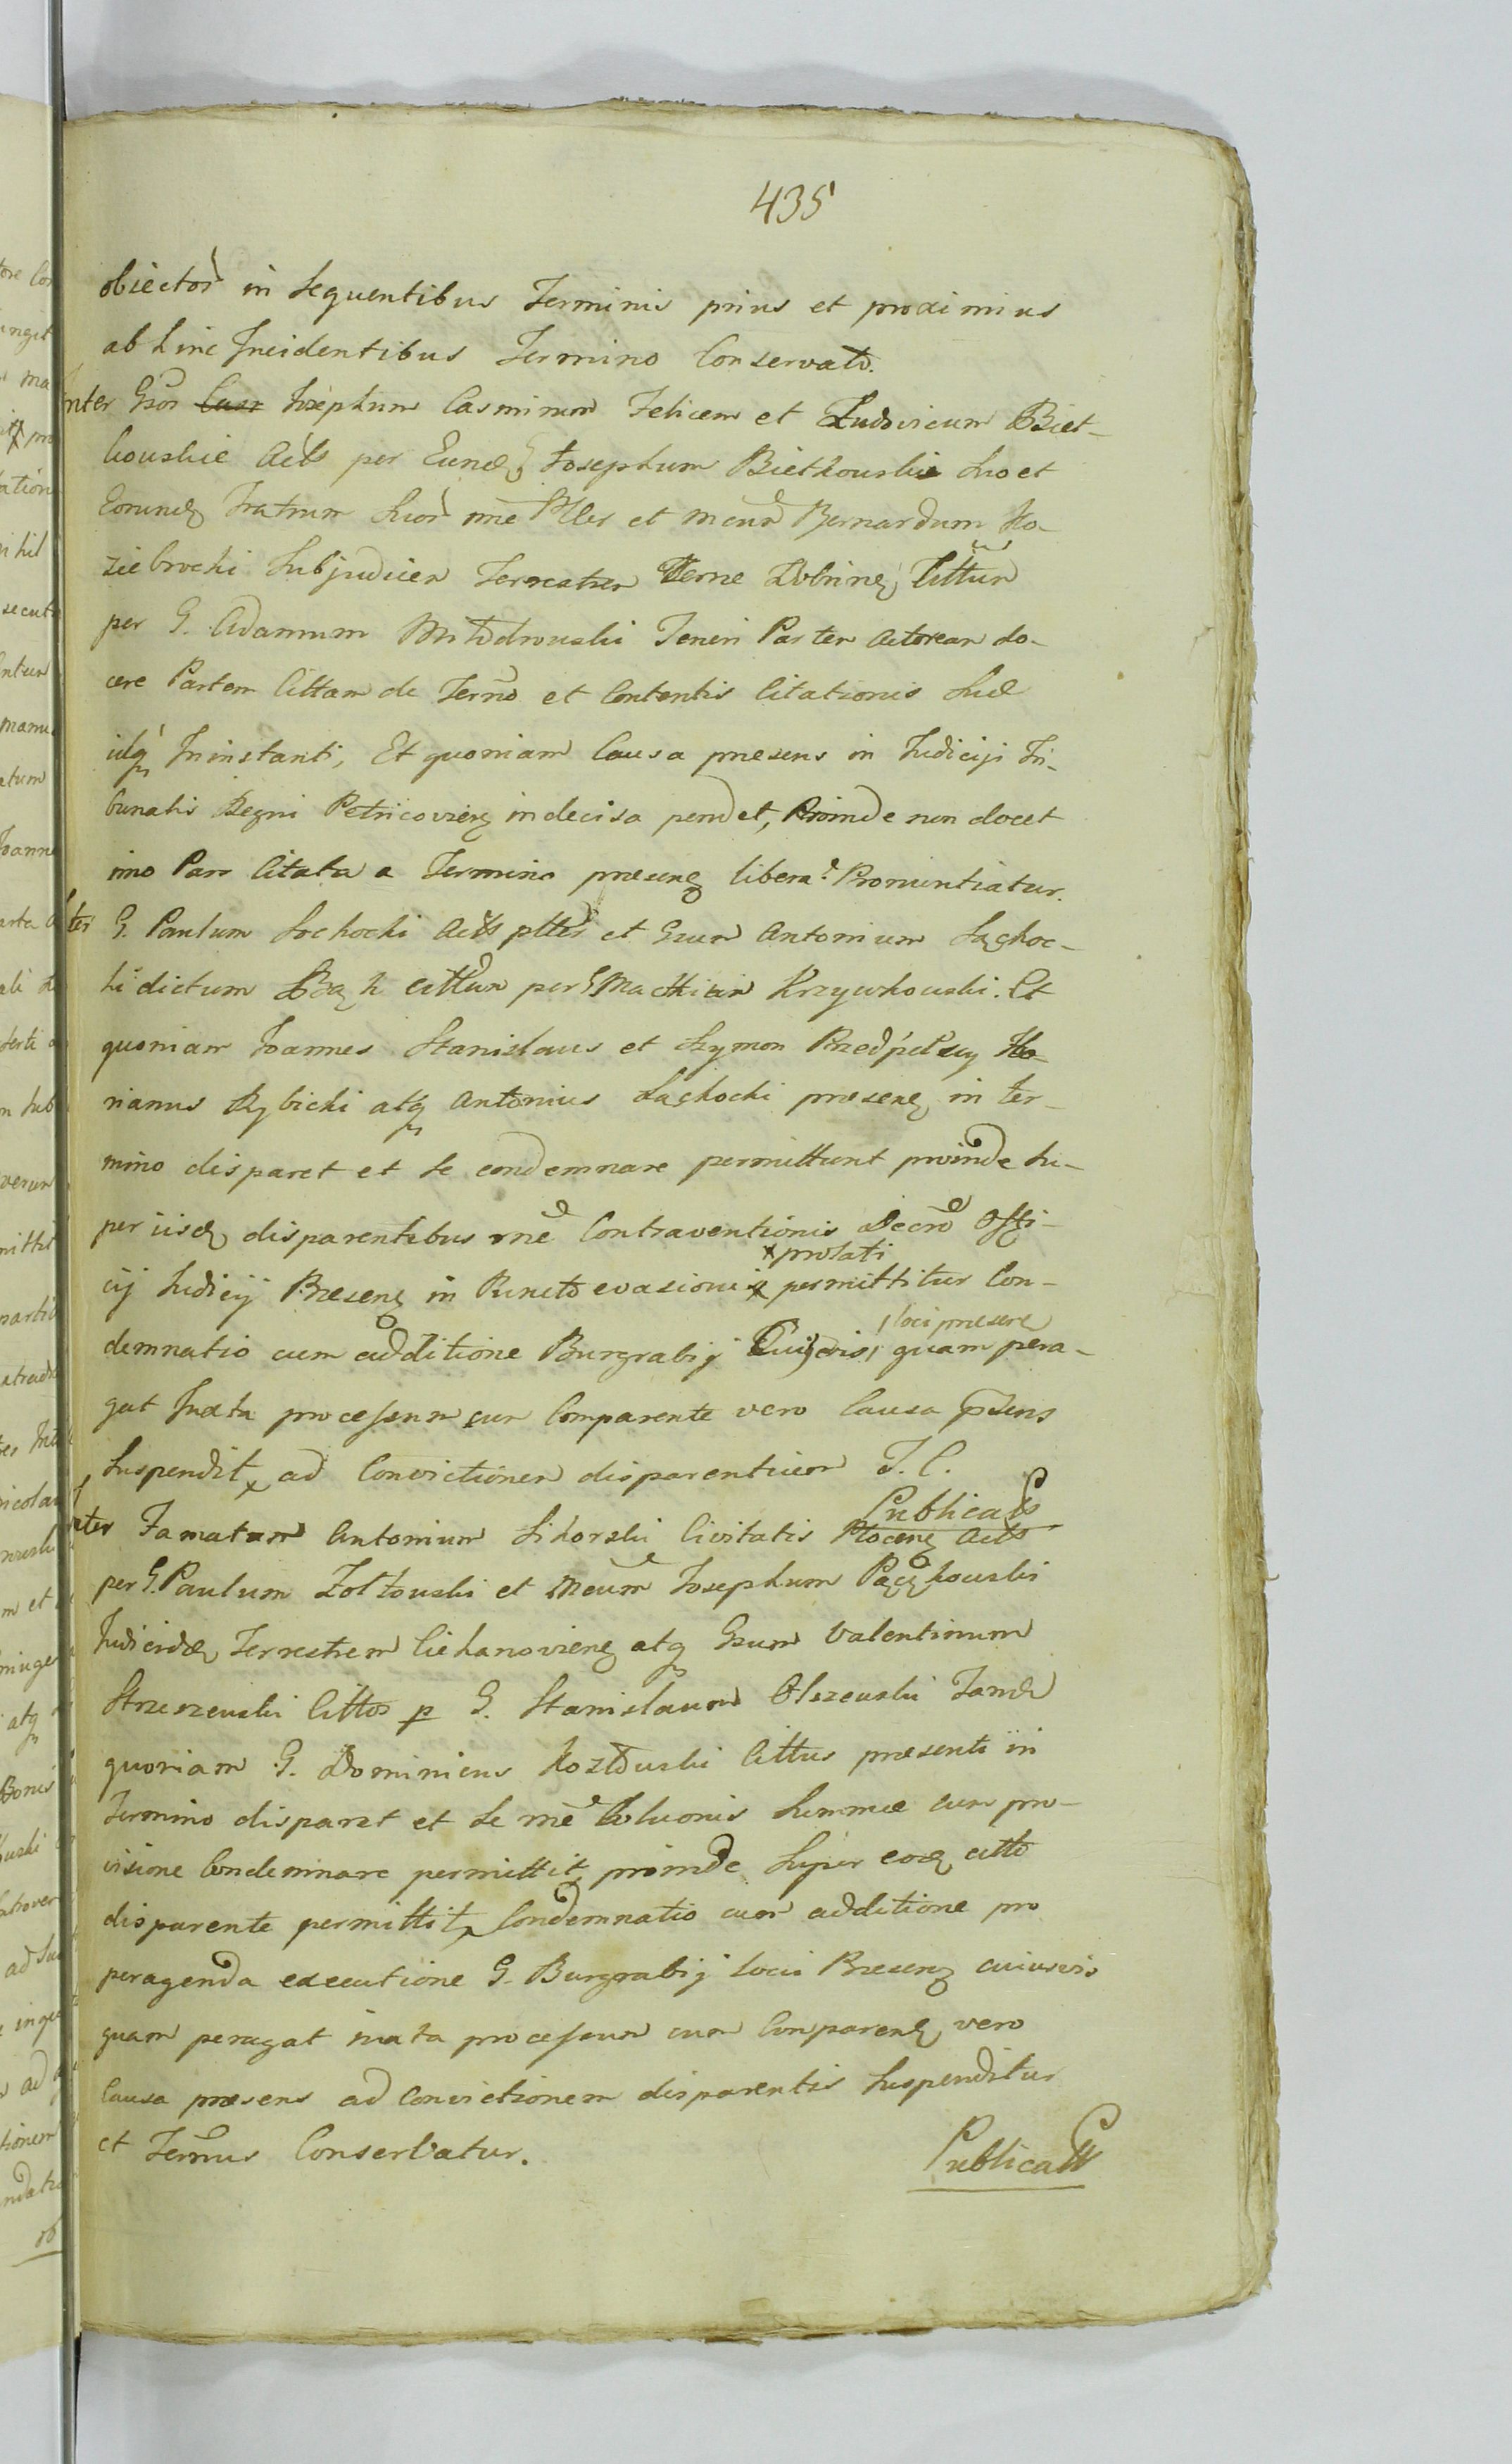 435
obiector in Sequentibus Terminis prius et proximius
abhinc Incidentibus Termino Conservato.
Inter Gsos Casr Josephum Casmirum Felicem et Ludovicum Biet-
kouskie Acts per Eund Josephum Bietkouskie Suo et
Eorund Fratrum Suor nne Plles et Mcum Bernardum Ko-
ziebrocki Subjudicem Terrestrem Terrae Dobrinen Cittum
per G. Adamum Młodrouski Teneri Partem Actoream do-
cere Partem Cittam de Terno et Contentis Citationis Suae
idq Ininstanti, Et quoniam Causa praesens in Judicijs Tri-
bunalis Regni Petricovien indecisa pendet, Proinde non docet
imo Pars Citata a Termino praesen libera Pronuntiatur.
Inter G. Paulum Sochocki Acts plles et Gsum Antonium Łączkoc-
ki dictum Bąk cittum per G Mathiam Krzywkouski. Et
quoniam Joannes Stanislaus et Szymon Przedpełscy Flo-
rianus Rybicki atq Antonius Łączkocki praesen in ter-
mino disparet et se condemnare permittunt proinde Su-
per iisd disparentibus rne Contraventionis Decro Offi-
cij Judicij Praesen in Puncto evasionis x permittitur Con-
x prolati
demnatio cum additione Burgrabij Cuiusvis / quam pera-
/ loci praesen
gat Juxta processum cum Comparente vero Causa psens
Suspendit ad Convictionem disparentium T. C.
Publicats
Inter Famatum Antonium Sikorski Civitatis Plocen Acts
per G. Paulum Żółtouski et Mcum Josephum Pączkouski
Judicem Terrestrem Ciehanovien atq Gsum Valentinum
Strzeszeuski Cittos p G. Stanislaum Olszeuski Tand
quoniam G. Dominicus Kozłouski Cittus praesenti in
Termino disparet et Se rne Soluonis Summae cum pro-
visione Condemnare permittit, proinde Super eod citto
disparente permittit Condemnatio cum additione pro
peragenda executione G. Burgrabij loci Praesen cuiusvis
quam peragat iuxta processum cum Comparen vero
Causa praesens ad Convictionem disparentis Suspenditur
et Ternus Conservatur.
Publicats